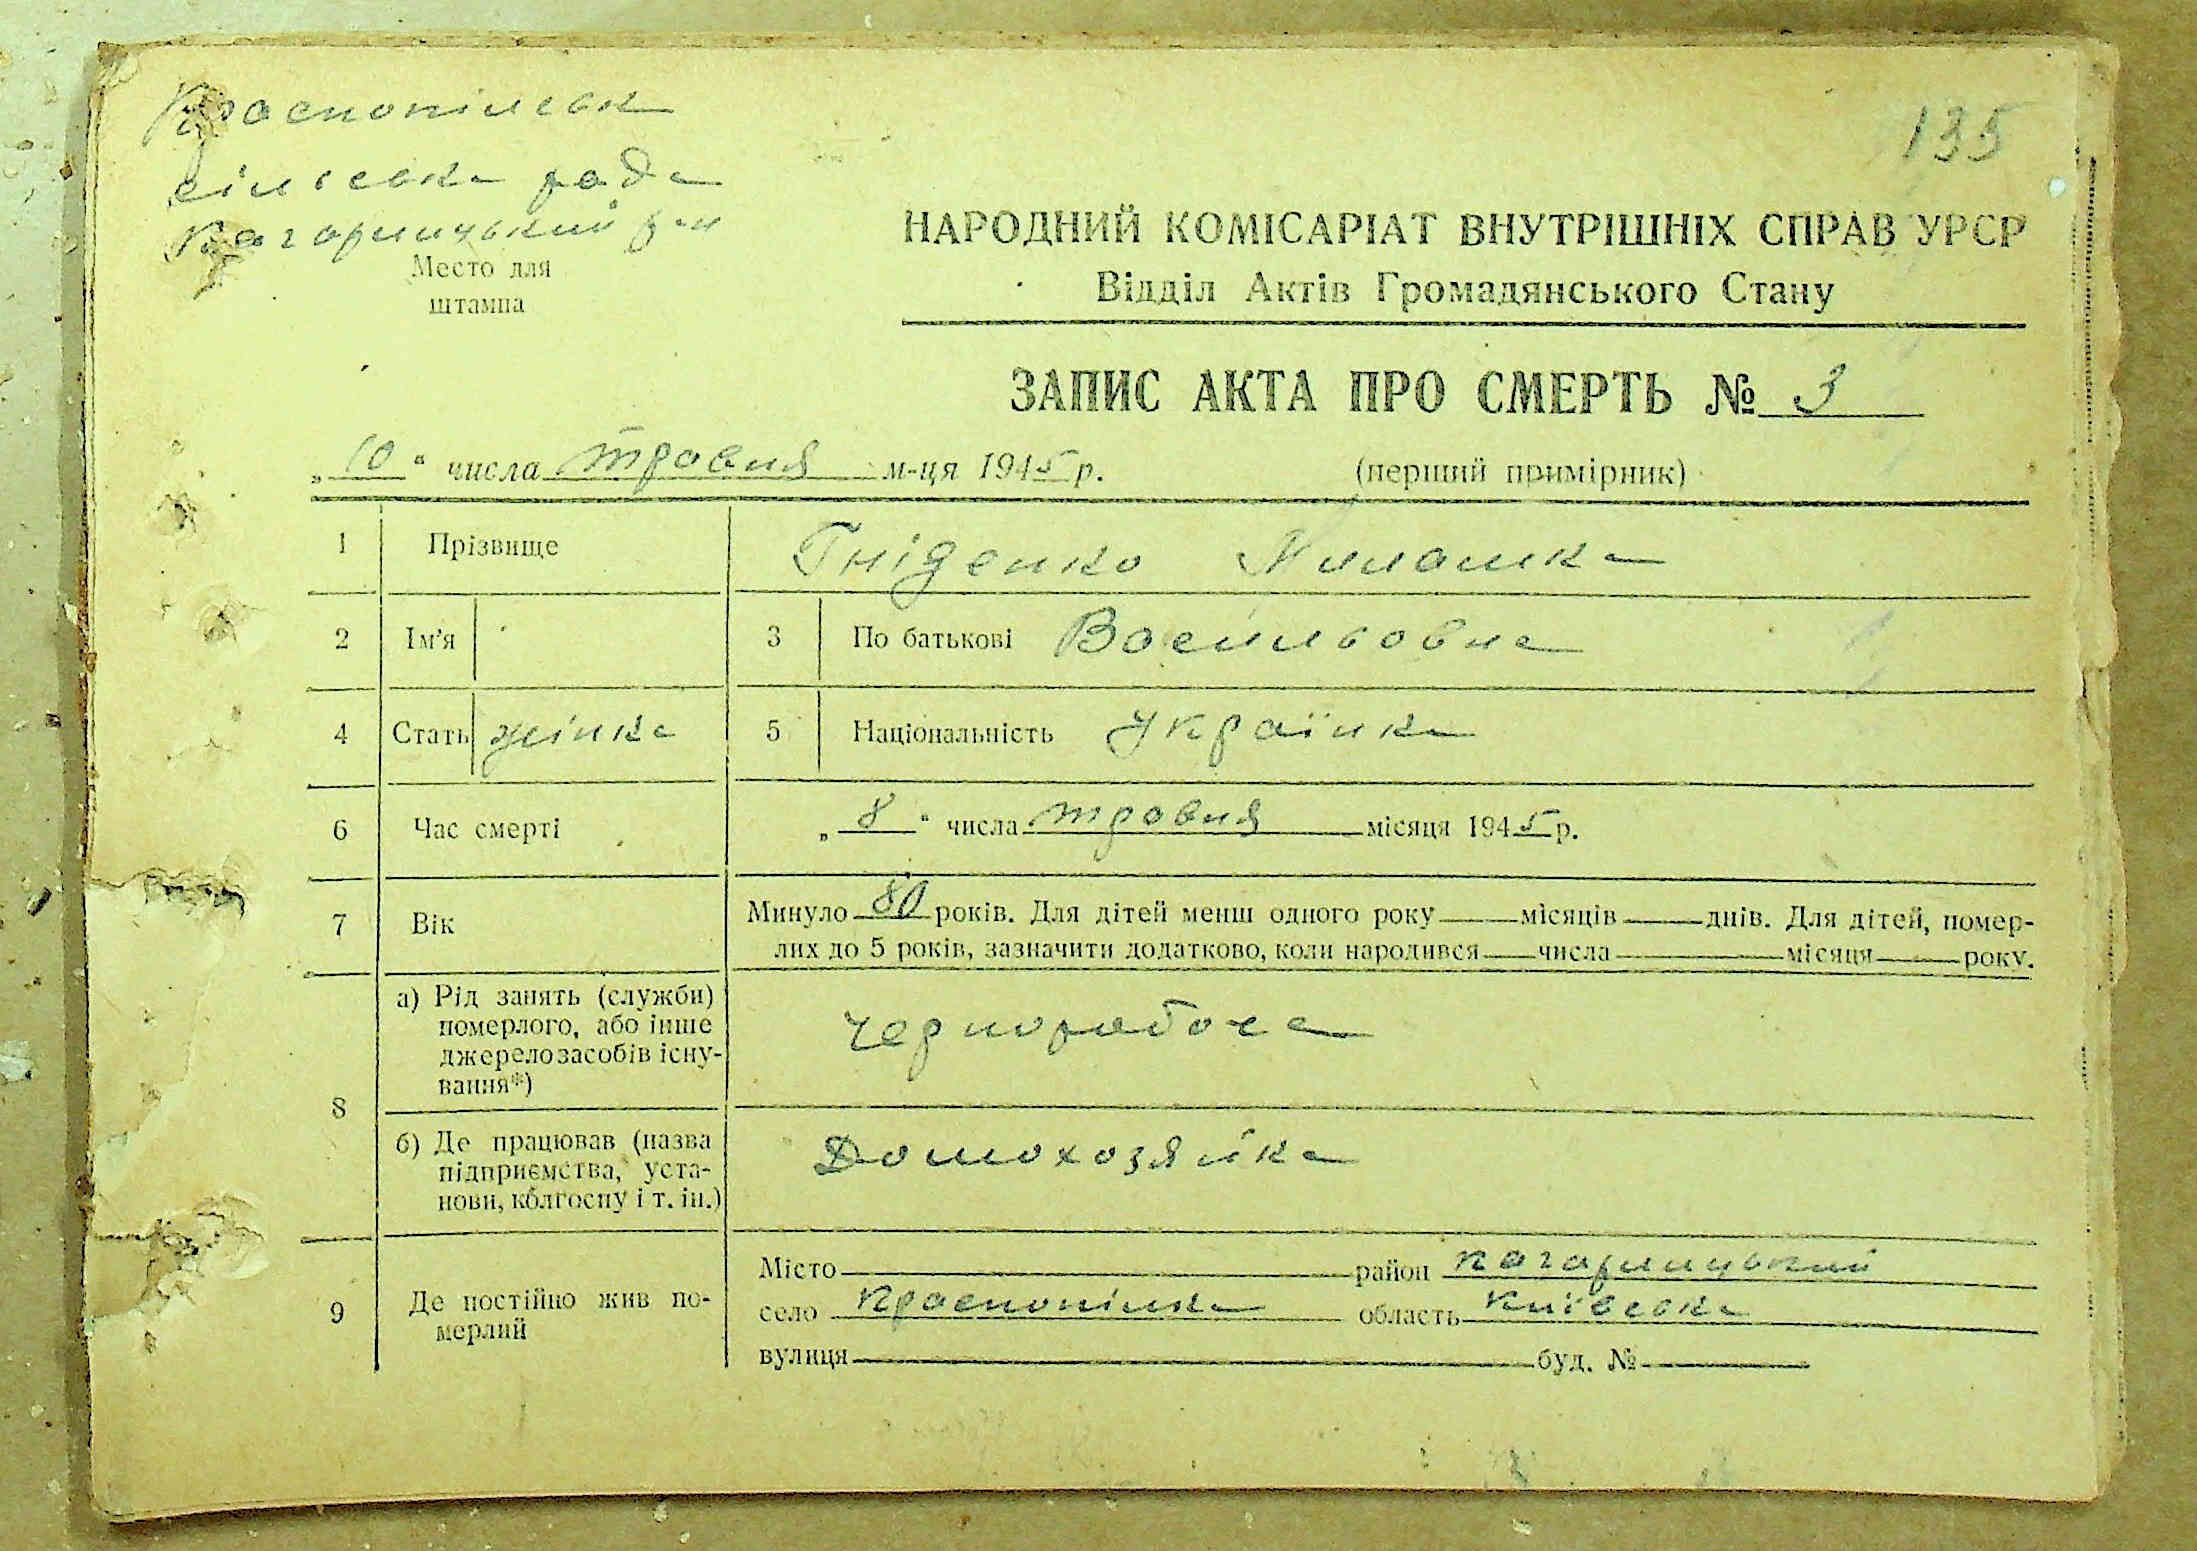 Краснопільськ
сільська рада
Кагарлицький р-н
Место для
штампа
135
НАРОДНИЙ КОМІСАРІАТ ВНУТРІШНІХ СПРАВ УРСР
Відділ Актів Громадянського Стану
ЗАПИС АКТА ПРО СМЕРТЬ № 3
„10“ числа травня м-ця 1945 р. (перший примірник)
1 Прізвище Гніденко Милашка
2 Ім'я 3 По батькові Васильовна
4 Стать жінка 5 Національність Українка
6 Час смерті „8“ числа травня місяця 1945 р.
7 Вік Минуло 80 років. Для дітей менш одного року місяців днів. Для дітей, помер-
лих до 5 років, зазначити додатково, коли народився числа місяця року.
8 а) Рід занять (служби)
померлого, або інше
джерело засобів існу-
вання*) чернорабоча
б) Де працював (назва
підприємства, уста-
нови, колгоспу і т. ін.) Домохозяйка
9 Де постійно жив по-
мерлий
Місто район кагарлицький
село Краснопілка область київська
вулиця буд. №